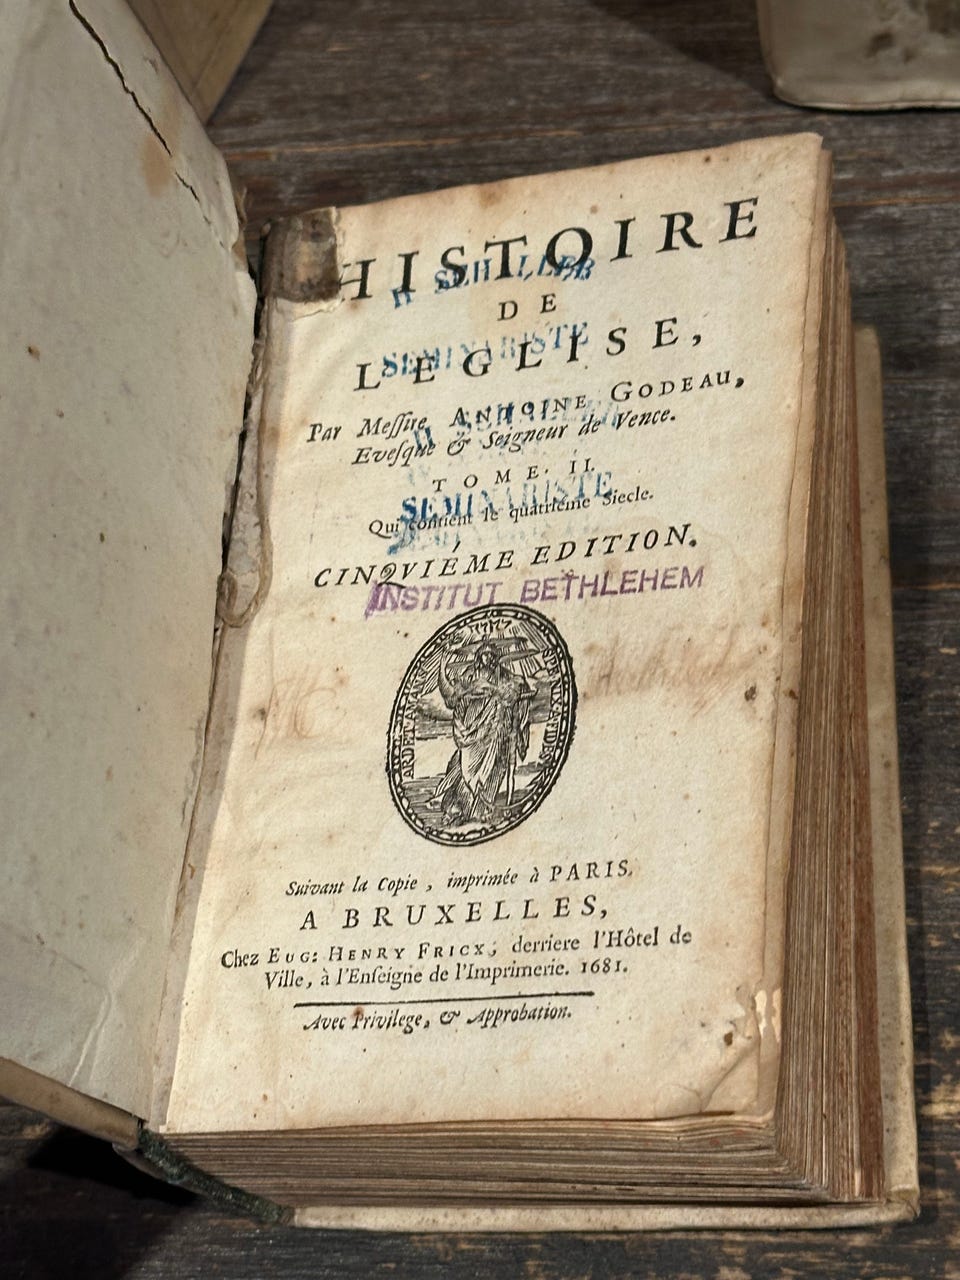 HISTOIRE
DE
L'EGLISE,
Par Meſſire ANTOINE GODEAU,
Eveſque & Seigneur de Vence.
TOME. II.
Qui contient le quatriéme Siecle.
CINQVIÉME EDITION.
SEMINARISTE
SEMINARISTE
INSTITUT BETHLEHEM
ARDET AMANS SPE NIXA FIDES
Suivant la Copie, imprimée à PARIS,
A BRUXELLES,
Chez EUG: HENRY FRICX, derriere l'Hôtel de
Ville, à l'Enſeigne de l'Imprimerie. 1681.
Avec Privilege, & Approbation.